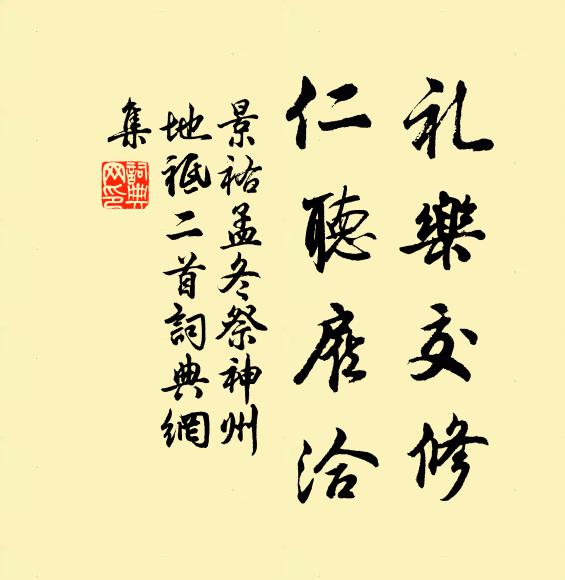 礼樂交修
仁聽扆洽
景祐孟冬祭神州
地祗二首詞典網
集
詞典
网印